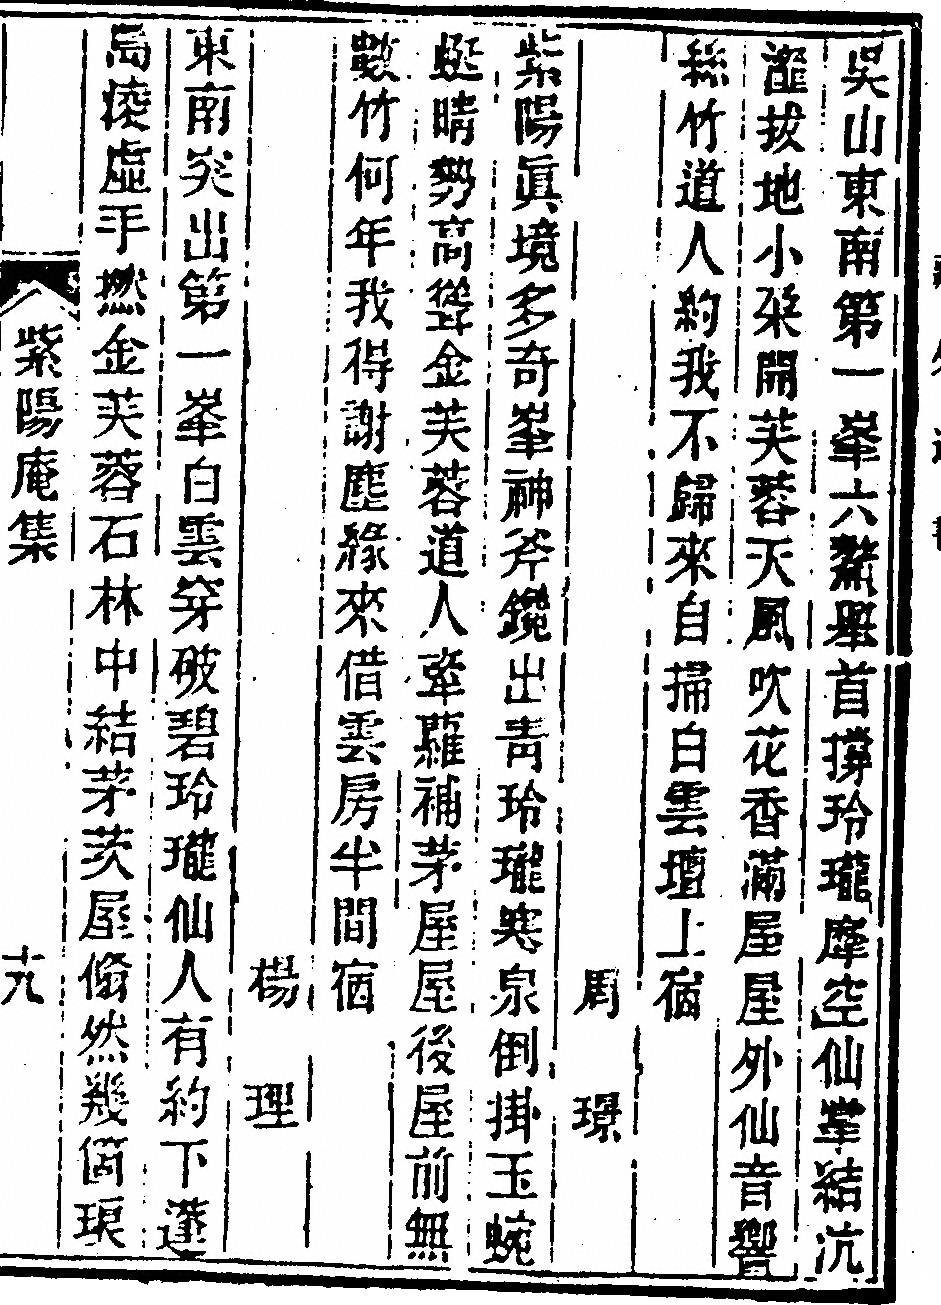 吳山東南第一峯六鰲舉首撐玲瓏摩空仙掌結沆
瀣拔地小朶開芙蓉天風吹花香滿屋屋外仙音響
絲竹道人約我不歸來自掃白雲壇上宿
周璟
紫陽眞境多奇峯神斧鑱出靑玲瓏寒泉倒掛玉蜿
蜒晴勢高聳金芙蓉道人牽蘿補茅屋屋後屋前無
數竹何年我得謝塵緣來借雲房半間宿
楊理
東南突出第一峯白雲穿破碧玲瓏仙人有約下蓬
島凌虛手撚金芙蓉石林中結茅茨屋翛然幾箇琅
紫陽庵集
十九